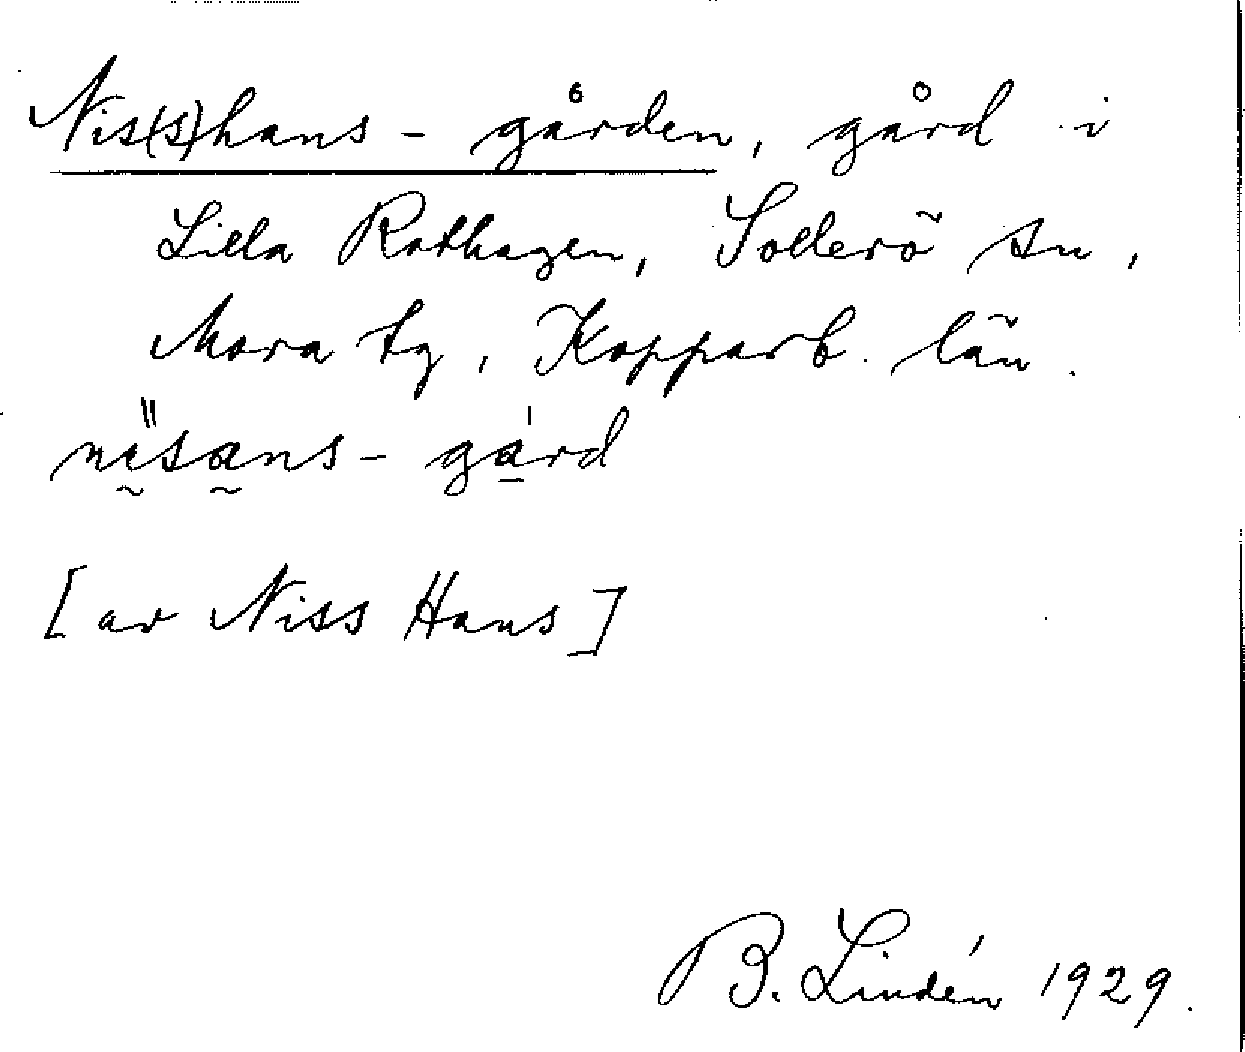 Nis(s)hans-gården, gård i
Lilla Rothagen, Sollerö sn,
Mora tg, Kopparb. län.
nı̰̎sa̰ns-gá̱rd
[av Niss Hans]
B. Lindén 1929.